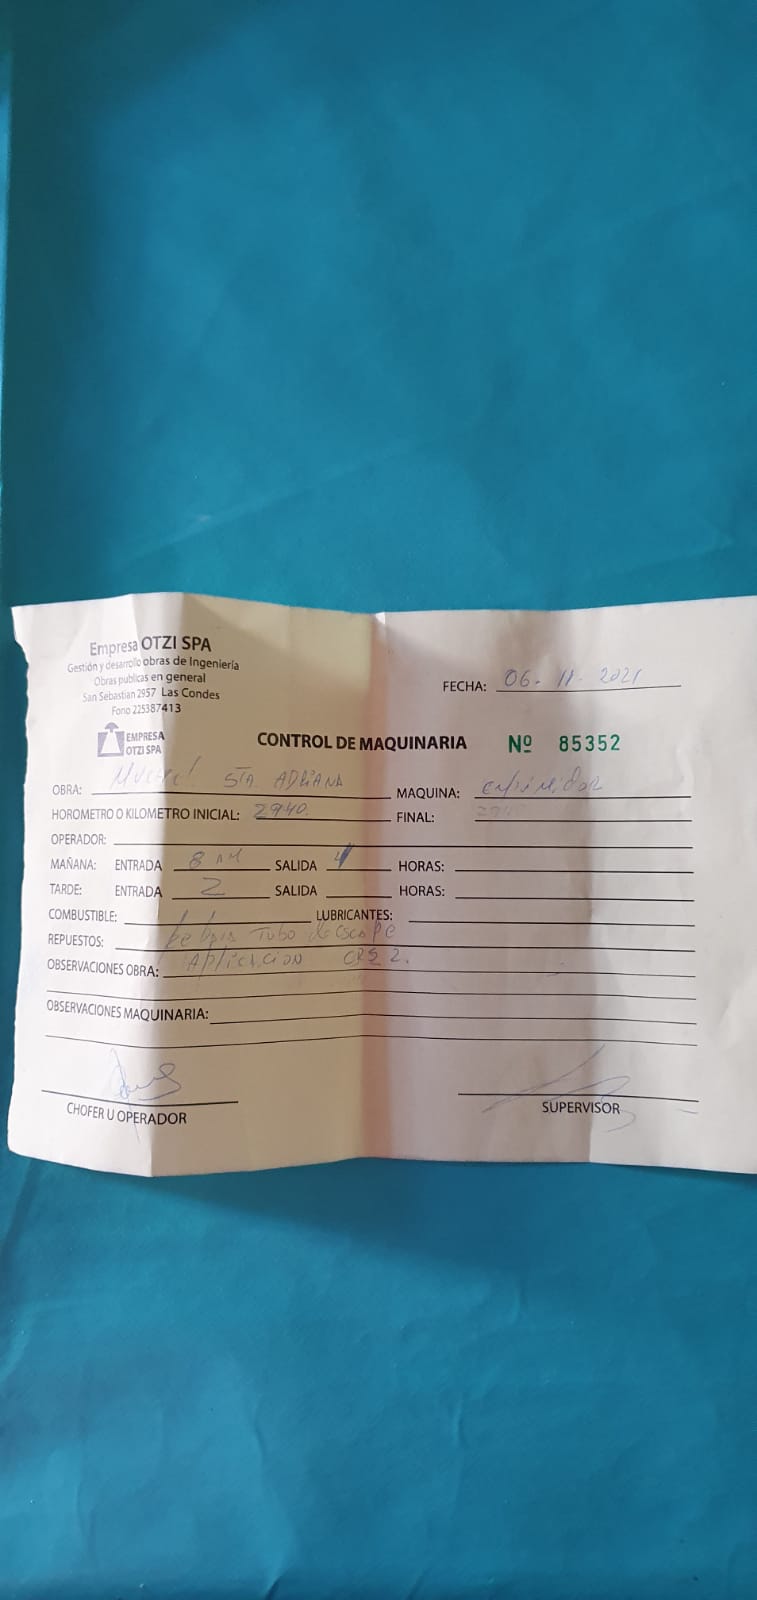 Empresa OTZI SPA
Gestión y desarrollo obras de Ingeniería
Obras publicas en general
San Sebastian 2957 Las Condes
Fono 225387413
FECHA: 06-11-2021
EMPRESA
OTZI SPA
CONTROL DE MAQUINARIA Nº 85352
OBRA: STA. ADRIANA MAQUINA:
HOROMETRO O KILOMETRO INICIAL: 2940. FINAL:
OPERADOR:
MAÑANA: ENTRADA 8 AM SALIDA HORAS:
TARDE: ENTRADA 2 SALIDA HORAS:
COMBUSTIBLE: LUBRICANTES:
REPUESTOS: Tubo de escape
OBSERVACIONES OBRA: Aplicacion
OBSERVACIONES MAQUINARIA:
CHOFER U OPERADOR
SUPERVISOR